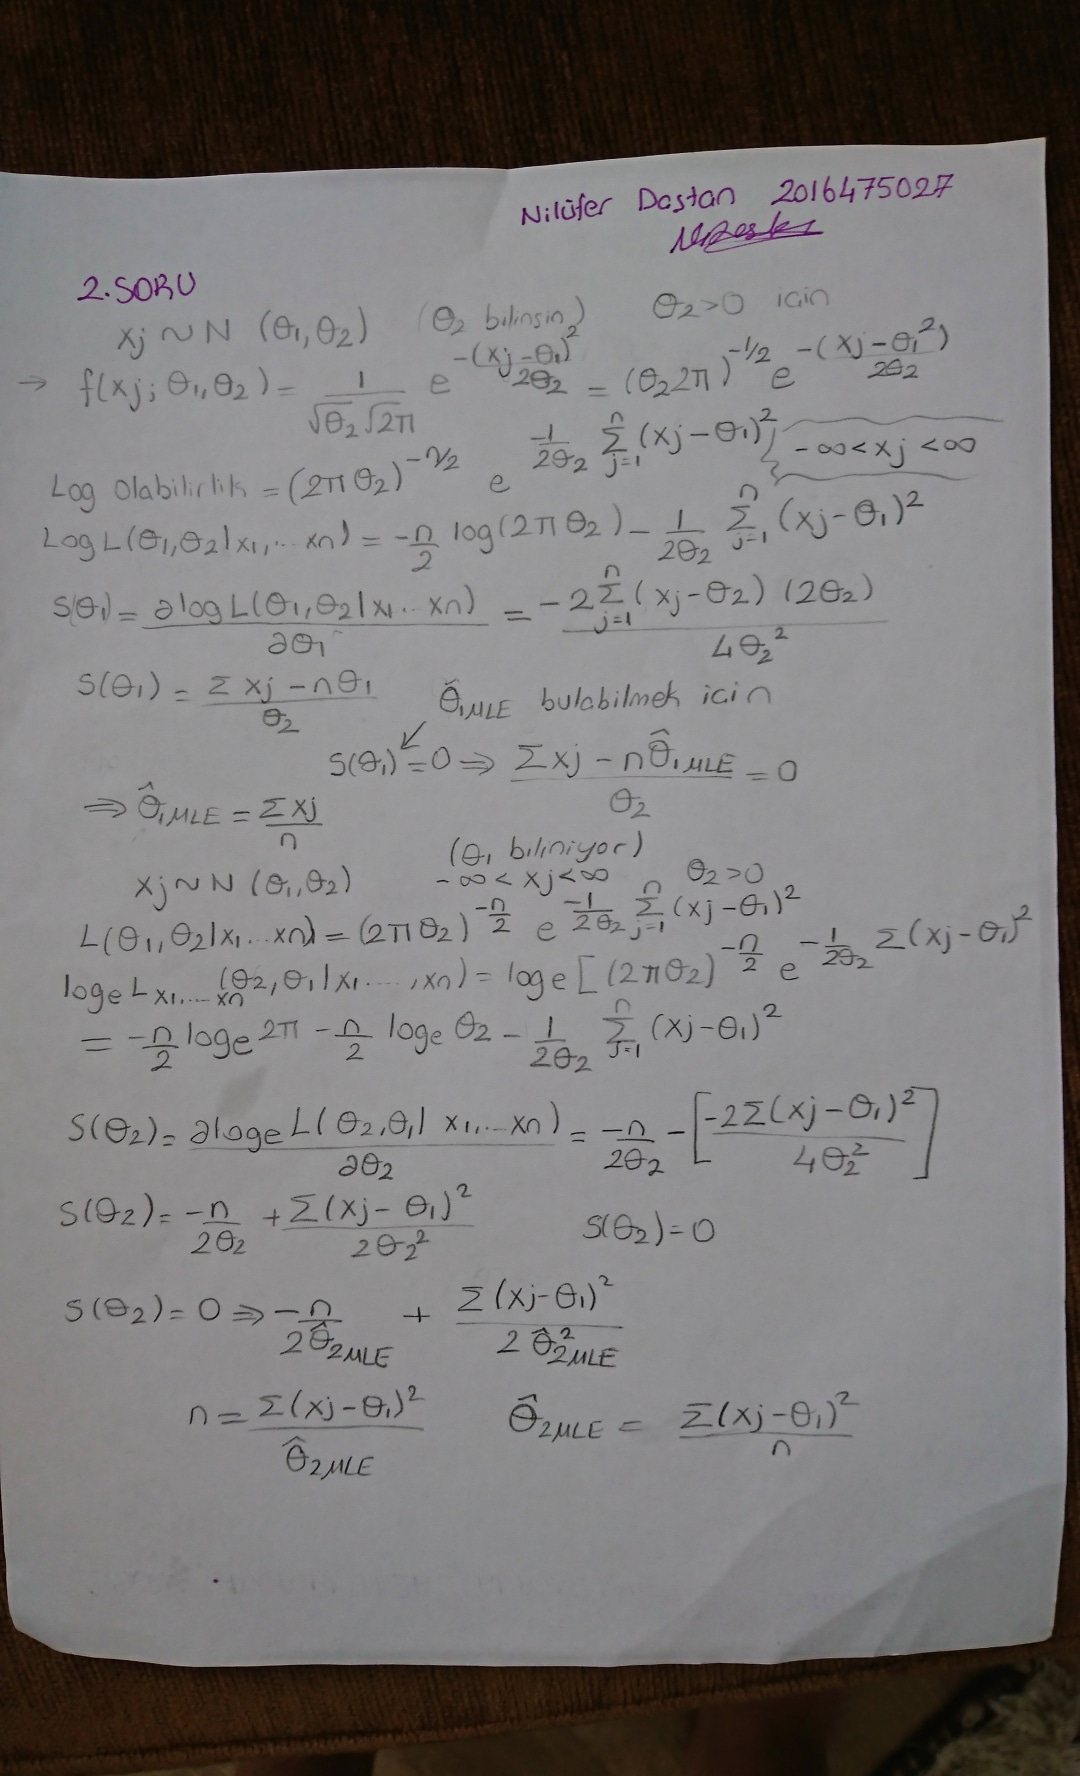 Nilüfer Dastan 2016475027
2.SORU
xj ~ N (θ1,θ2) (θ2 bilinsin) θ2>0 icin
→ f(xj; θ1,θ2) = 1/(√θ2 √2π) e^(-(xj-θ1)^2/2θ2) = (θ2 2π)^(-1/2) e^(-(xj-θ1^2)/2θ2)
Log Olabilirlik = (2πθ2)^(-n/2) e^(-1/2θ2 Σ_{j=1}^n (xj-θ1)^2), -∞<xj<∞
Log L(θ1,θ2|x1,...xn) = -n/2 log(2πθ2) - 1/2θ2 Σ_{j=1}^n (xj-θ1)^2
S(θ1) = ∂logL(θ1,θ2|x1...xn)/∂θ1 = -2Σ_{j=1}^n (xj-θ2)(2θ2)/4θ2^2
S(θ1) = (Σxj-nθ1)/θ2 θ̂1MLE bulabilmek icin
S(θ1)=0 ⇒ (Σxj - nθ̂1MLE)/θ2 = 0
⇒ θ̂1MLE = Σxj/n
(θ1 biliniyor)
xj ~ N (θ1,θ2) -∞<xj<∞ θ2>0
L(θ1,θ2|x1...xn) = (2πθ2)^(-n/2) e^(-1/2θ2 Σ_{j=1}^n (xj-θ1)^2)
loge L x1,...xn (θ2,θ1|x1....,xn) = loge[(2πθ2)^(-n/2) e^(-1/2θ2 Σ(xj-θ1)^2)
= -n/2 loge 2π - n/2 loge θ2 - 1/2θ2 Σ_{j=1}^n (xj-θ1)^2
S(θ2) = ∂loge L(θ2,θ1|x1,...xn)/∂θ2 = -n/2θ2 - [-2Σ(xj-θ1)^2/4θ2^2]
S(θ2) = -n/2θ2 + Σ(xj-θ1)^2/2θ2^2 S(θ2)=0
S(θ2)=0 ⇒ -n/2θ̂2MLE + Σ(xj-θ1)^2/2θ̂2MLE^2
n = Σ(xj-θ1)^2/θ̂2MLE θ̂2MLE = Σ(xj-θ1)^2/n